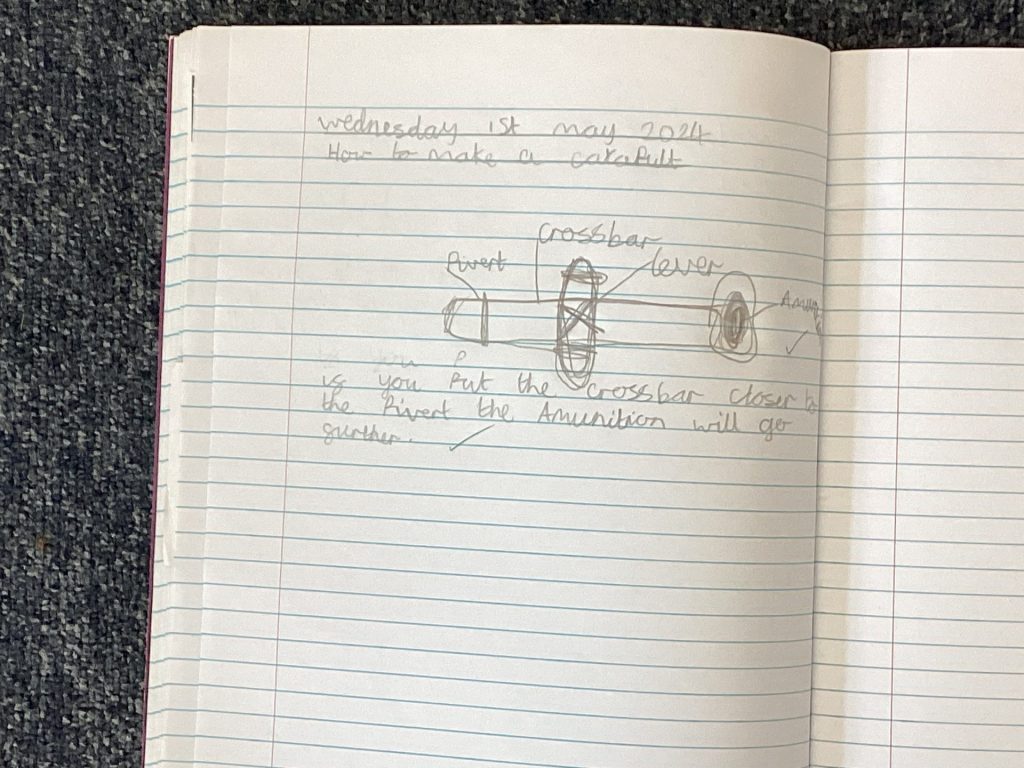 wednesday 1st may 2024
How to make a catapult
crossbar
Pivert
lever
is you put the crossbar closer to
the Pivert the Amunition will go
gurther.